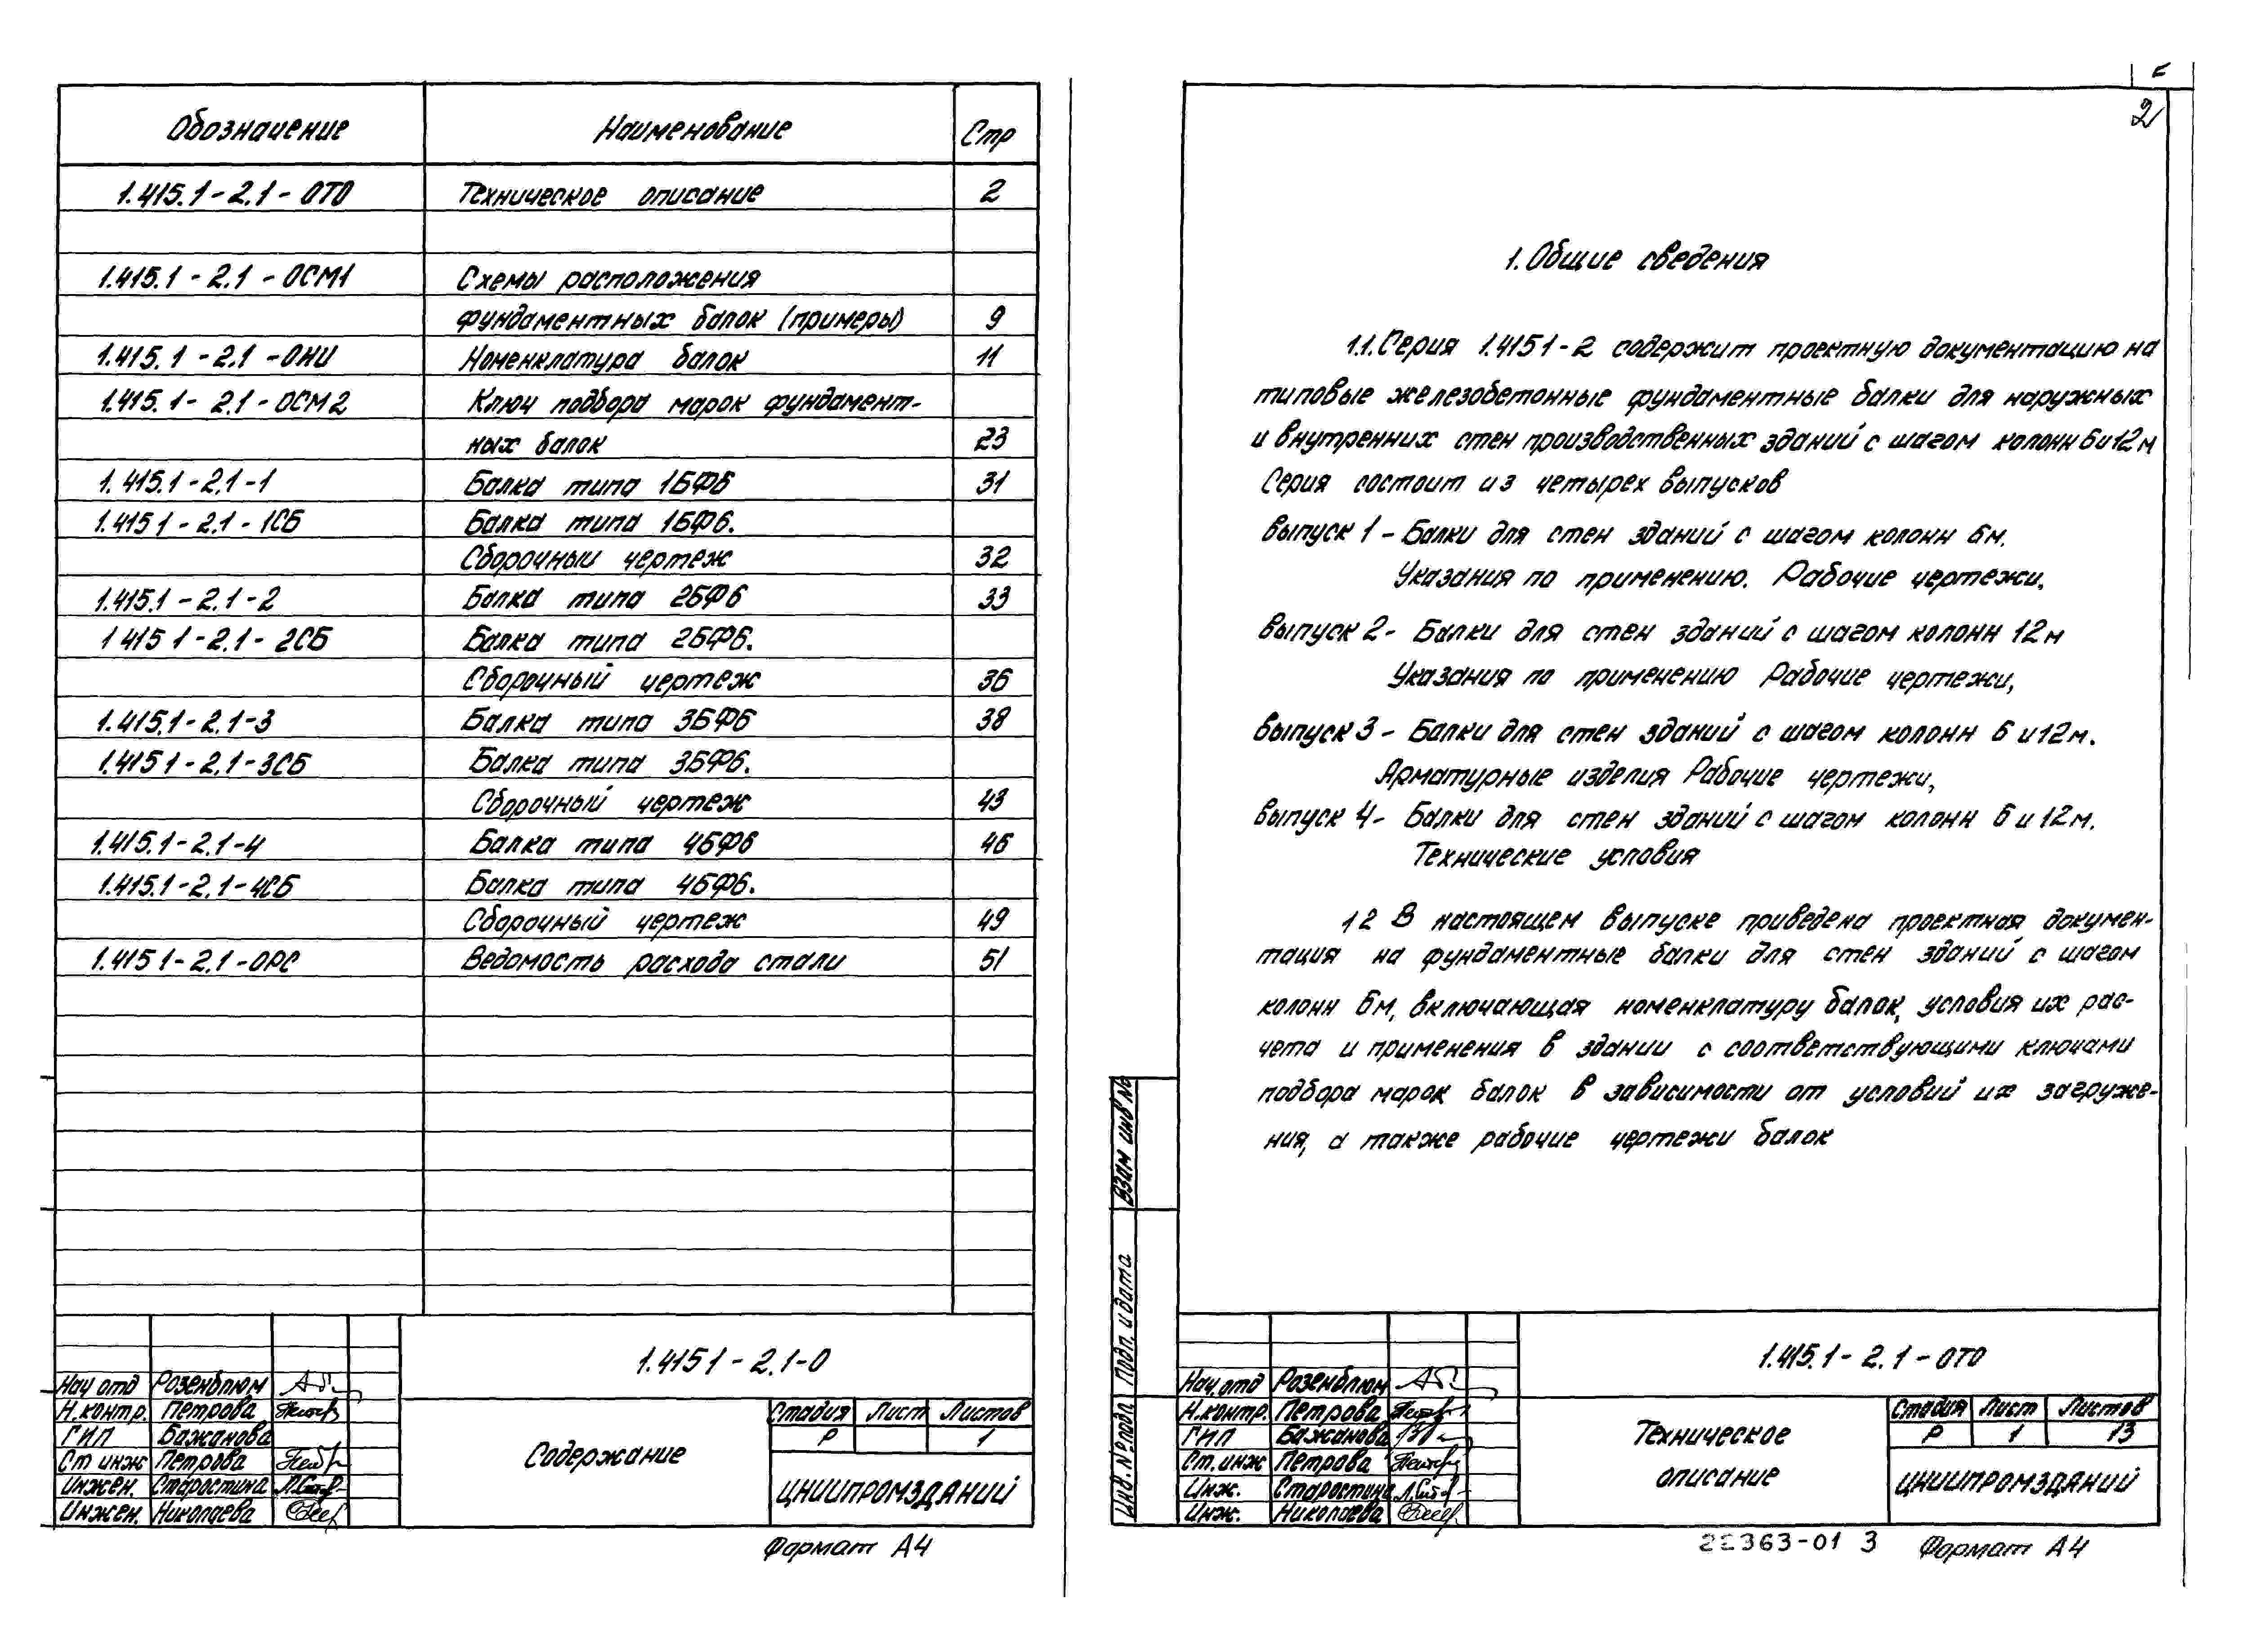 Обозначение Наименование Стр
1.415.1-2.1-0ТО Техническое описание 2
1.415.1-2.1-0СМ1 Схемы расположения
фундаментных балок (примеры) 9
1.415.1-2.1-0НИ Номенклатура балок 11
1.415.1-2.1-0СМ2 Ключ подбора марок фундамент-
ных балок 23
1.415.1-2.1-1 Балка типа 1БФ6 31
1.415 1-2.1-1СБ Балка типа 1БФ6.
Сборочный чертеж 32
1.415.1-2.1-2 Балка типа 2БФ6 33
1 415 1-2.1-2СБ Балка типа 2БФ6.
Сборочный чертеж 36
1.415.1-2.1-3 Балка типа 3БФ6 38
1.415 1-2.1-3СБ Балка типа 3БФ6.
Сборочный чертеж 43
1.415.1-2.1-4 Балка типа 4БФ6 46
1.415.1-2.1-4СБ Балка типа 4БФ6.
Сборочный чертеж 49
1.415 1-2.1-0РС Ведомость расхода стали 51
1.415 1-2.1-0
Нач отд Розенблюм
Н.контр. Петрова
ГИП Бажанова
Ст инж Петрова
Инжен. Старостина
Инжен. Николаева
Содержание
Стадия Лист Листов
Р 1
ЦНИИПРОМЗДАНИЙ
Формат А4
2
1. Общие сведения
1.1. Серия 1.415 1-2 содержит проектную документацию на
типовые железобетонные фундаментные балки для наружных
и внутренних стен производственных зданий с шагом колонн 6 и 12 м
Серия состоит из четырех выпусков
выпуск 1 - Балки для стен зданий с шагом колонн 6м.
Указания по применению. Рабочие чертежи.
выпуск 2 - Балки для стен зданий с шагом колонн 12м
Указания по применению Рабочие чертежи,
выпуск 3 - Балки для стен зданий с шагом колонн 6 и 12м.
Арматурные изделия Рабочие чертежи,
выпуск 4 - Балки для стен зданий с шагом колонн 6 и 12м.
Технические условия
1 2 В настоящем выпуске приведена проектная докумен-
тация на фундаментные балки для стен зданий с шагом
колонн 6м, включающая номенклатуру балок, условия их рас-
чета и применения в здании с соответствующими ключами
подбора марок балок в зависимости от условий их загруже-
ния, а также рабочие чертежи балок
Взам инв №
Подп. и дата
Инв. № подл
1.415.1-2.1-0ТО
Нач. отд Розенблюм
Н.контр. Петрова
ГИП Бажанова
Ст. инж Петрова
Инж. Старостина
Инж. Николаева
Техническое
описание
Стадия Лист Листов
Р 1 13
ЦНИИПРОМЗДАНИЙ
22363-01 3 Формат А4